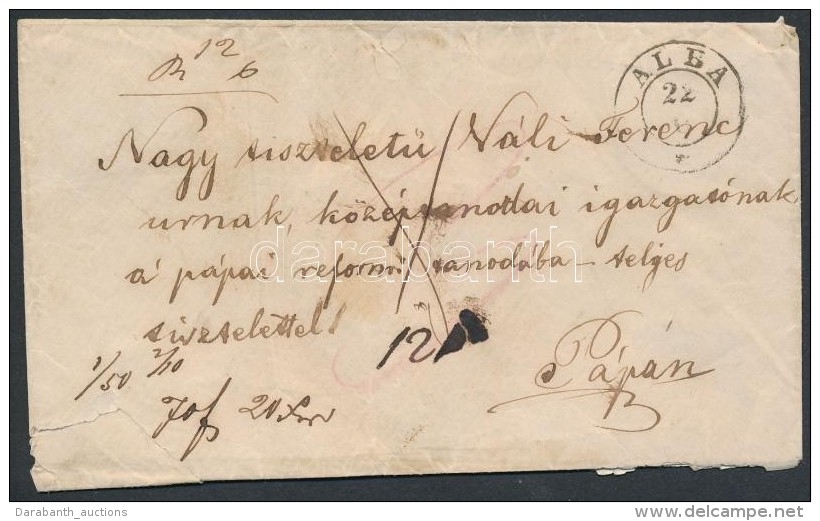 12
R 6
ALBA
22
Nagy tiszteletü Váli Ferenc
urnak, középtanodai igazgatónak,
á pápai reform. tanodába – teljes
tisztelettel!
12
Pápán
1/50 2/10
20
darabanth
Darabanth_auctions
www.delcampe.net